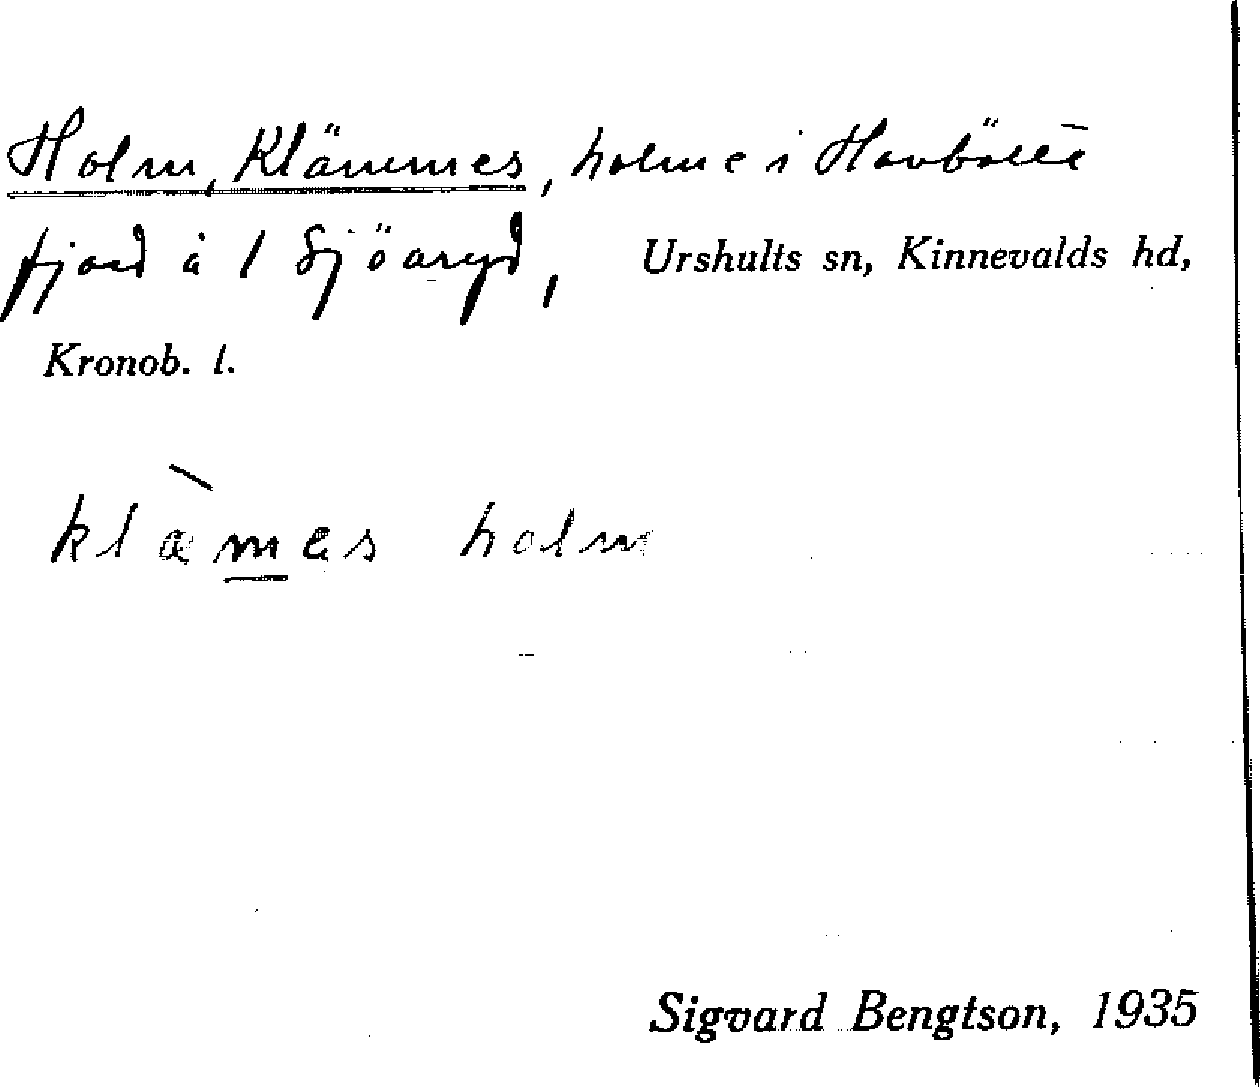 Holm, Klämmes, holme i Havbälte
fjord å 1 Sjöaryd, Urshults sn, Kinnevalds hd,
Kronob. l.
klæ̀mes holm
Sigvard Bengtson, 1935